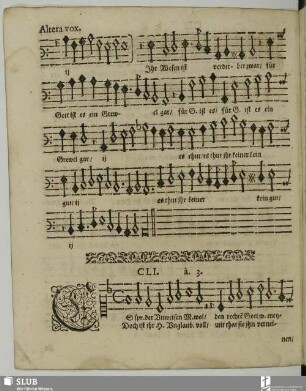 Altera vox.
ij Ihr Wesen ist verder- bet zwar/ für
Gott ist es ein Grew- el gar/ für G. ist es/ für G. ist es ein
Grewel gar/ ij es thut/ es thut ihr keiner kein
gut/ ij es thut ihr keiner kein gut/
ij
CLI. à. 3.
ES spr. der Unweisen M. wol/ den rechtē Gott w. mey-
Doch ist ihr H. Unglaub. voll/ mit that sie ihn vernei-
nen/
SLUB